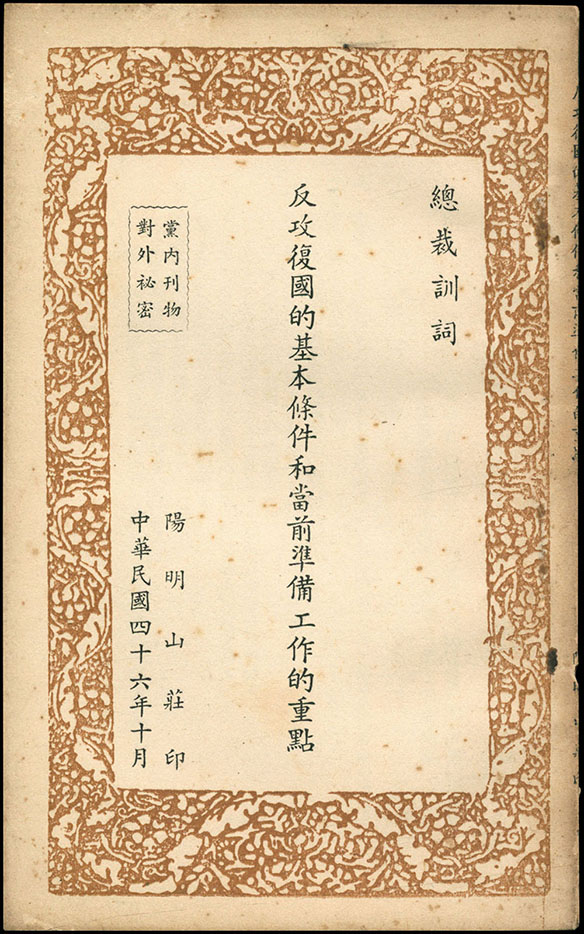 總裁訓詞
反攻復國的基本條件和當前準備工作的重點
黨內刊物
對外祕密
陽明山莊印
中華民國四十六年十月